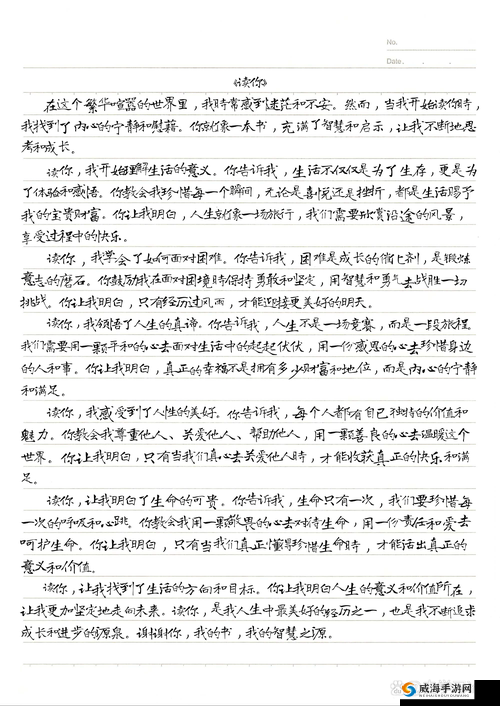 No.
Date. . .
《读你》
在这个繁华喧嚣的世界里，我时常感到迷茫和不安。然而，当我开始读你时，
我找到了内心的宁静和慰藉。你就像一本书，充满了智慧和启示，让我不断地思
考和成长。
读你，我开始理解生活的意义。你告诉我，生活不仅仅是为了生存，更是为
了体验和感悟。你教会我珍惜每一个瞬间，无论是喜悦还是挫折，都是生活赐予
我的宝贵财富。你让我明白，人生就像一场旅行，我们需要欣赏沿途的风景，
享受过程中的快乐。
读你，我学会了如何面对困难。你告诉我，困难是成长的催化剂，是锻炼
意志的磨石。你鼓励我在面对困境时保持勇敢和坚定，用智慧和勇气去战胜一切
挑战。你让我明白，只有经历过风雨，才能迎接更美好的明天。
读你，我领悟了人生的真谛。你告诉我，人生不是一场竞赛，而是一段旅程。
我们需要用一颗平和的心去面对生活中的起起伏伏，用一份感恩的心去珍惜身边
的人和事。你让我明白，真正的幸福不是拥有多少财富和地位，而是内心的宁静
和满足。
读你，我感受到了人性的美好。你告诉我，每个人都有自己独特的价值和
魅力。你教会我尊重他人、关爱他人、帮助他人，用一颗善良的心去温暖这个
世界。你让我明白，只有当我们真心去关爱他人时，才能收获真正的快乐和满
足。
读你，让我明白了生命的可贵。你告诉我，生命只有一次，我们要珍惜每
一次的呼吸和心跳。你教会我用一颗敬畏的心去对待生命，用一份责任和爱去
呵护生命。你让我明白，只有当我们真正懂得珍惜生命时，才能活出真正的
意义和价值。
读你，让我找到了生活的方向和目标。你让我明白人生的意义和价值所在，
让我更加坚定地走向未来。读你，是我人生中最美好的经历之一，也是我不断追求
成长和进步的源泉。谢谢你，我的书，我的智慧之源。
威海手游网